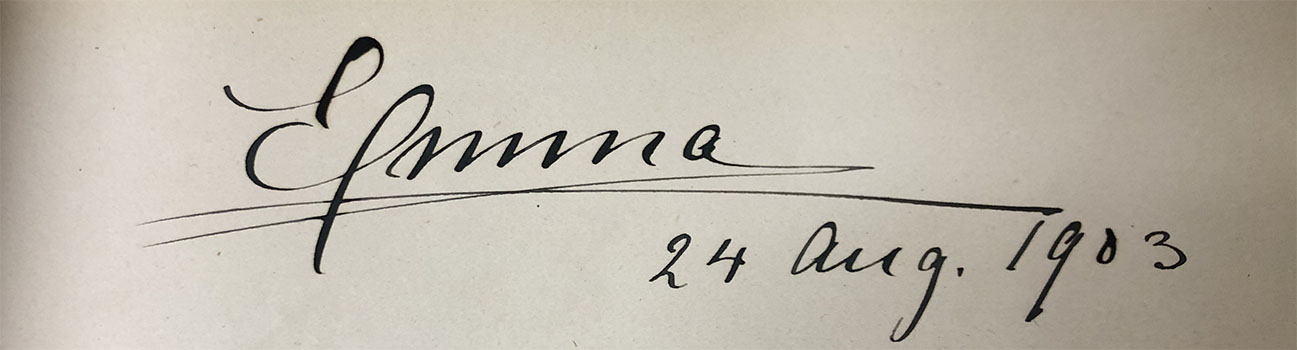 Emma
24 Aug. 1903